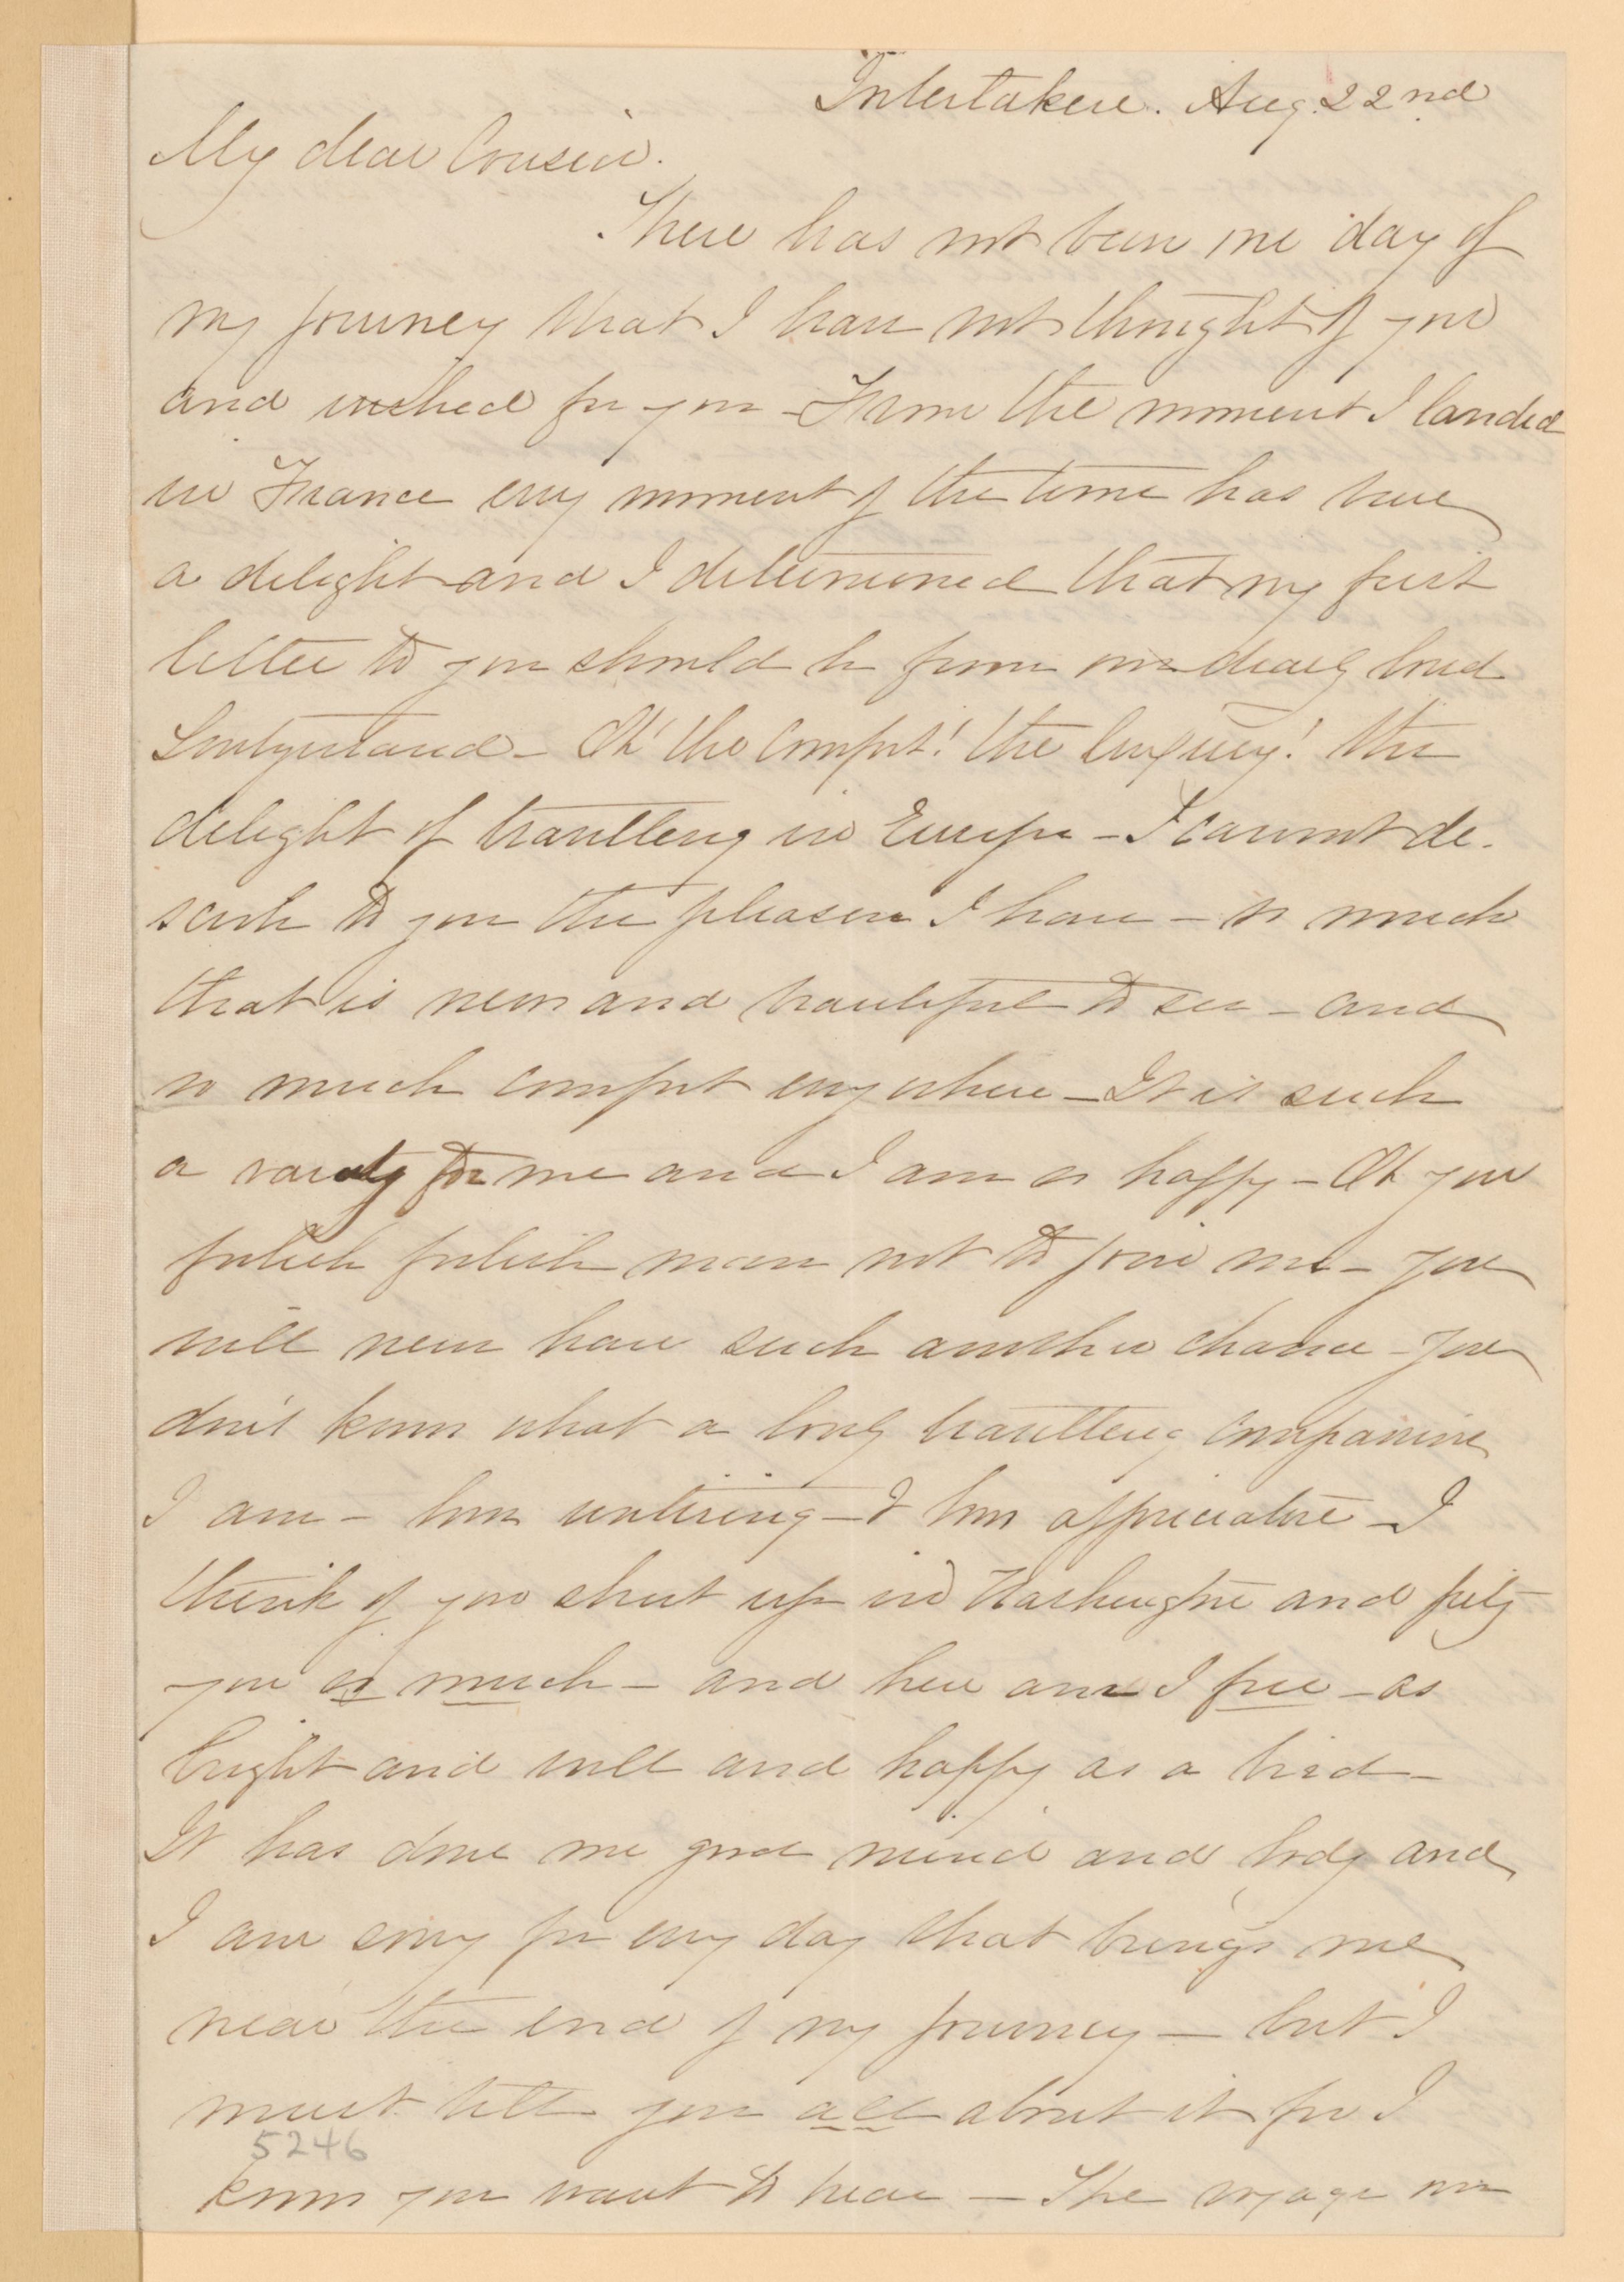 Interlaken. Aug. 22nd
My dear Cousin.
There has not been one day of
my journey that I have not thought of you
and wished for you – From the moment I landed
in France every moment of the time has been
a delight and I determined that my first
letter to you should be from our dearly loved
Switzerland – Oh! the comfort! the luxury! the
delight of travelling in Europe – I cannot de-
scribe to you the pleasure I have – so much
that is new and beautiful to see – and
so much comfort everywhere – It is such
a variety for me and I am so happy – Oh you
foolish foolish man not to join me – you
will never have such another chance – You
don't know what a lovely travelling companion
I am – how untiring – & how appreciative – I
think of you shut up in Washington and pity
you so much – and here am I free – as
bright and well and happy as a bird –
It has done me good mind and body and
I am sorry for every day that brings me
near the end of my journey – but I
must tell you all about it for I
5246
know you want to hear – The voyage our